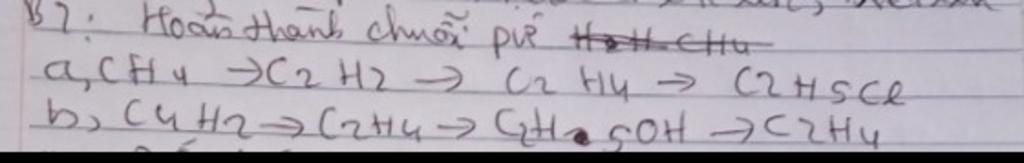 B7: Hoàn thành chuỗi pứ
a, CH4 → C2H2 → C2H4 → C2H5Cl
b, C4H2 → C2H4 → C2H5OH → C2H4